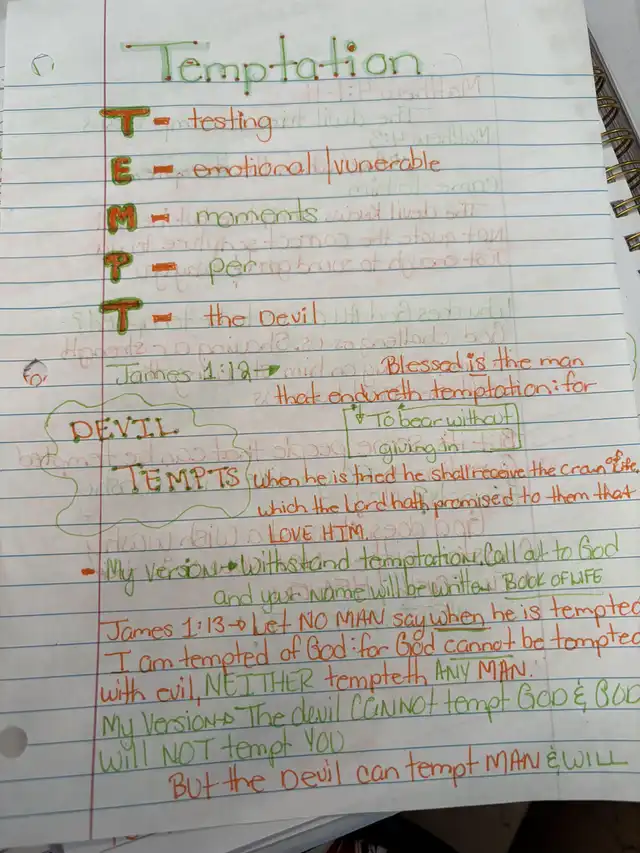 Temptation
T - testing
E - emotional/vunerable
M - moments
P - per
T - the Devil
James 1:12→ Blessed is the man
that endureth temptation: for
To bear without
giving in
DEVIL
TEMPTS
when he is tried he shall receive the crown of life,
which the Lord hath promised to them that
LOVE HIM.
- My version→ Withstand temptation. Call out to God
and your name will be written BOOK OF LIFE
James 1:13→ Let NO MAN say when he is tempted
I am tempted of God: for God cannot be tempted
with evil, NEITHER tempteth ANY MAN.
My Version→ The devil CANNOT tempt GOD & GOD
will NOT tempt YOU
But the Devil can tempt MAN & WILL